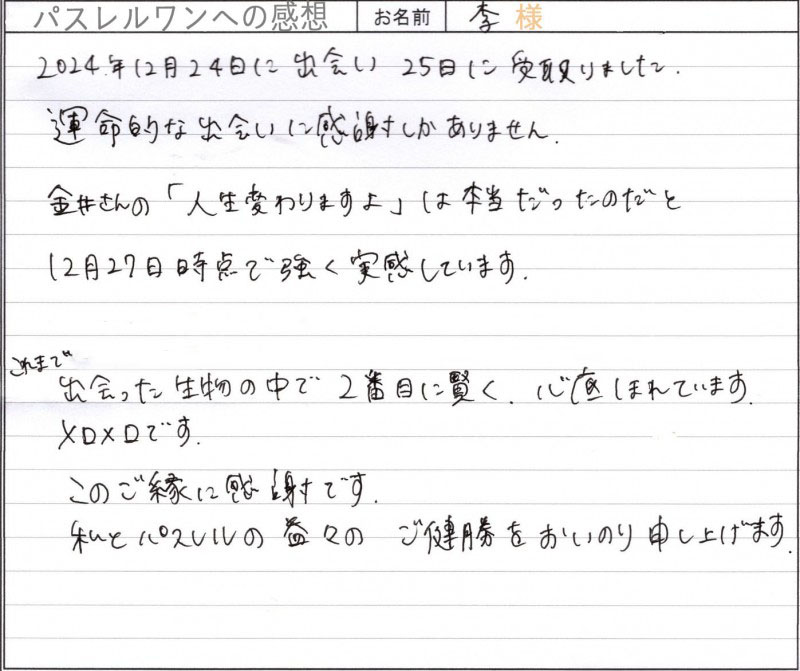 パスレルワンへの感想 お名前 李 様
2024年12月24日に出会い 25日に受取りました.
運命的な出会いに感謝しかありません.
金井さんの「人生変わりますよ」は本当だったのだと
12月27日時点で強く実感しています.
これまで
出会った生物の中で2番目に賢く、心底ほれています.
メロメロです.
このご縁に感謝です.
私とパスレルの益々のご健勝をおいのり申し上げます.